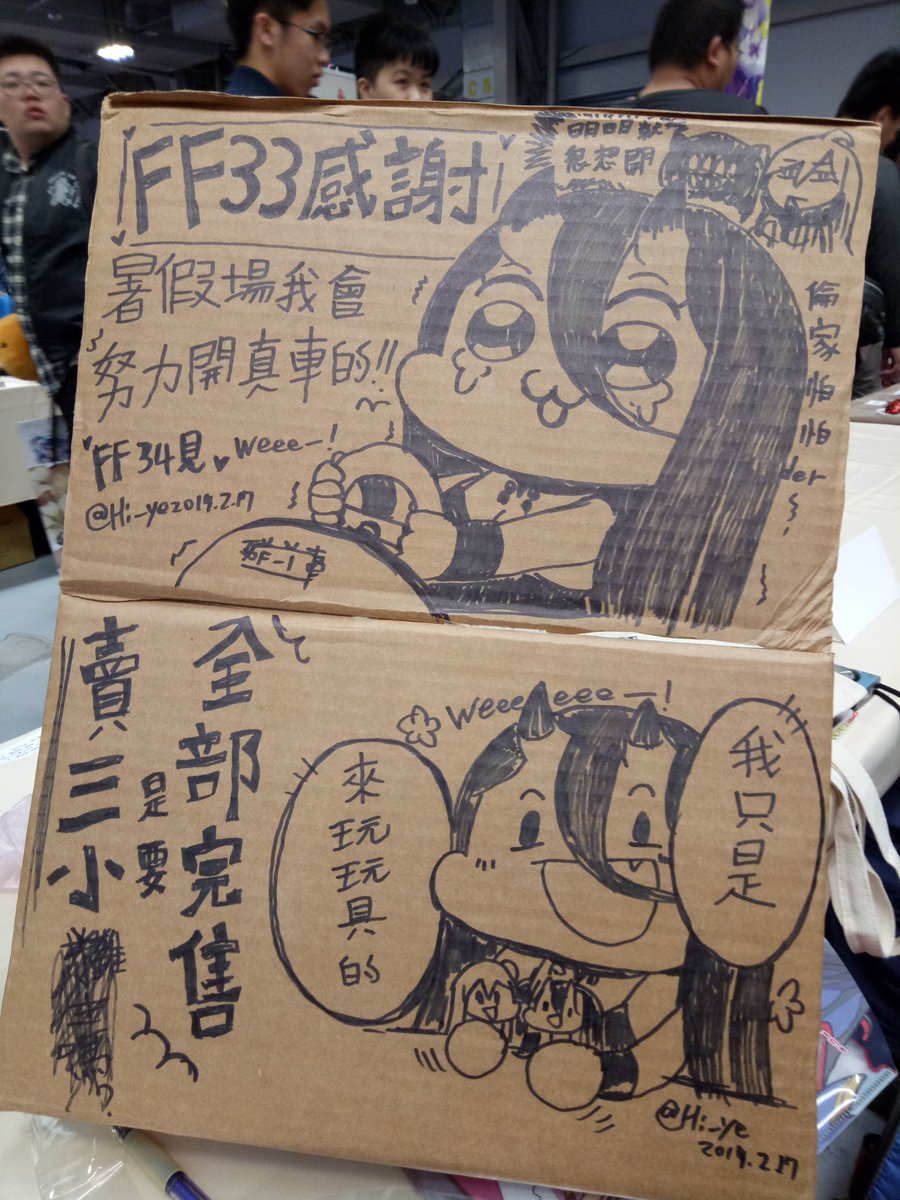 FF33感謝
暑假場我會
努力開真車的!!
FF34見
weee—!
@Hi_ye2019.2.17
明明就
想開
倫家怕怕der~
全部完售
是要
賣三小
weeeeeee—!
我只是
來玩玩具的
@Hi_ye
2019.2.17
C5